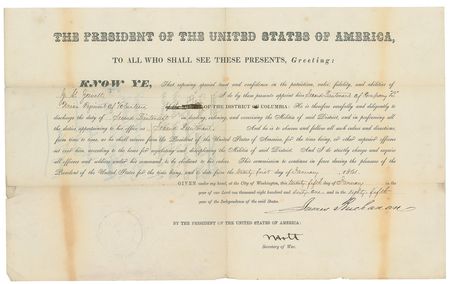 THE PRESIDENT OF THE UNITED STATES OF AMERICA,
TO ALL WHO SHALL SEE THESE PRESENTS, Greeting:
KNOW YE, That reposing special trust and confidence in the patriotism, valor, fidelity, and abilities of
I do by these presents appoint him Second Lieutenant of Company
Regiment of Volunteers OF THE DISTRICT OF COLUMBIA: He is therefore carefully and diligently to
discharge the duty of Second Lieutenant in leading, ordering, and exercising the Militia of said District, and in performing all
the duties appertaining to his office as Second Lieutenant. And he is to observe and follow all such orders and directions
from time to time, as he shall receive from the President of the United States of America for the time being, or other superior officers
set over him, according to the laws for regulating and disciplining the Militia of said District. And I do strictly charge and require
all officers and soldiers under his command, to be obedient to his orders. This commission to continue in force during the pleasure of the
President of the United States for the time being, and to date from the day of January, 1861.
GIVEN under my hand, at the City of Washington, this Twenty fifth day of January in the
year of our Lord one thousand eight hundred and sixty one, and in the Eighty fifth
year of the Independence of the said States.
James Buchanan
BY THE PRESIDENT OF THE UNITED STATES OF AMERICA:
Secretary of War.